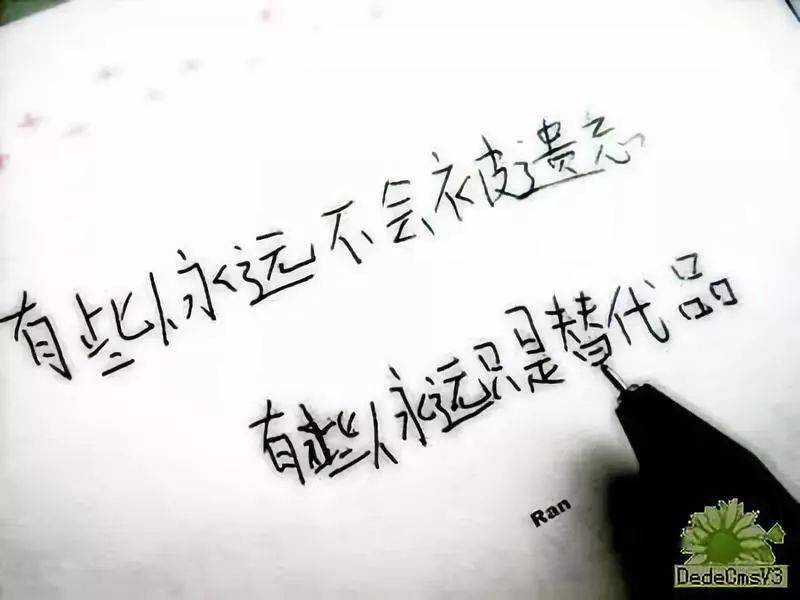 有些人永远不会被遗忘
有些人永远只是替代品
Ran
DedeCmsV3